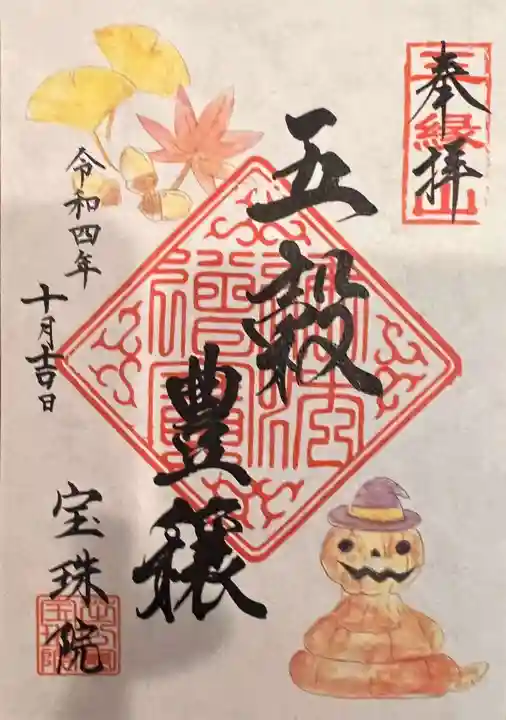 奉拝
五穀
豊穣
令和四年
十月吉日
宝珠院